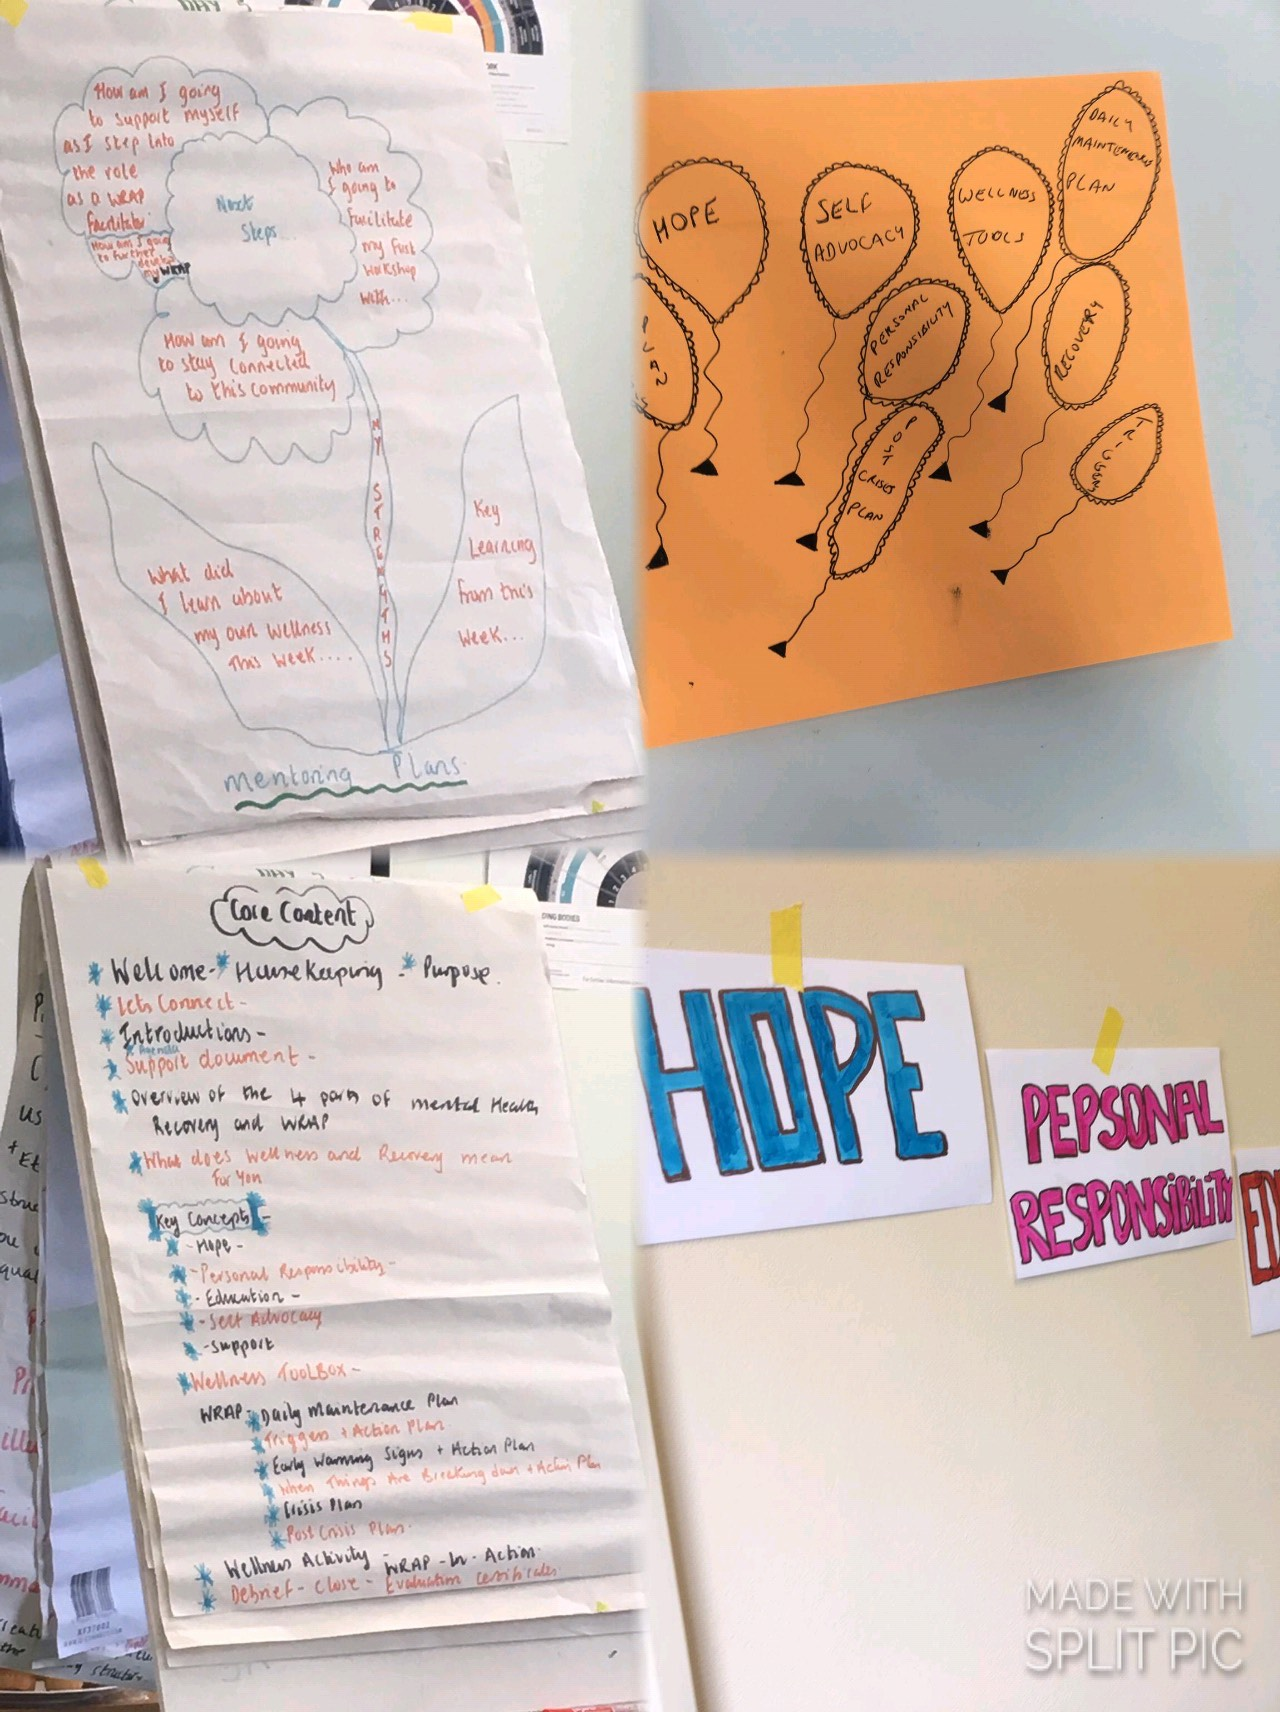 How am I going
to support myself
as I step into
the role
as a WRAP
facilitator
How am I going
to further
develop
my WRAP
Next
Steps...
Who am
I going to
facilitate
my first
workshop
with...
How am I going
to stay connected
to this community
MY STRENGTHS
What did
I learn about
my own wellness
This week....
Key
Learning
from this
week...
Mentoring Plans
HOPE
SELF
ADVOCACY
WELLNESS
TOOLS
DAILY
MAINTENENS
PLAN
PERSONAL
RESPONSIBILITY
RECOVERY
POST
CRISIS
PLAN
Core Content
Welcome - Housekeeping - Purpose.
Lets Connect -
Introductions -
Support document -
Overview of the 4 parts of mental Health
Recovery and WRAP
What does Wellness and Recovery mean
for You
Key Concepts -
- Hope -
- Personal Responsibility -
- Education -
- Self Advocacy
- Support
Wellness TOOLBOX -
WRAP - Daily Maintenance Plan
Triggers + Action Plan.
Early Warning Signs + Action Plan
When Things Are Breaking down + Action Plan
Crisis Plan
Post Crisis Plan.
Wellness Activity - WRAP - In - Action.
Debrief - Close - Evaluation Certificates
HOPE
PEPSONAL
RESPONSIBILITY
MADE WITH
SPLIT PIC